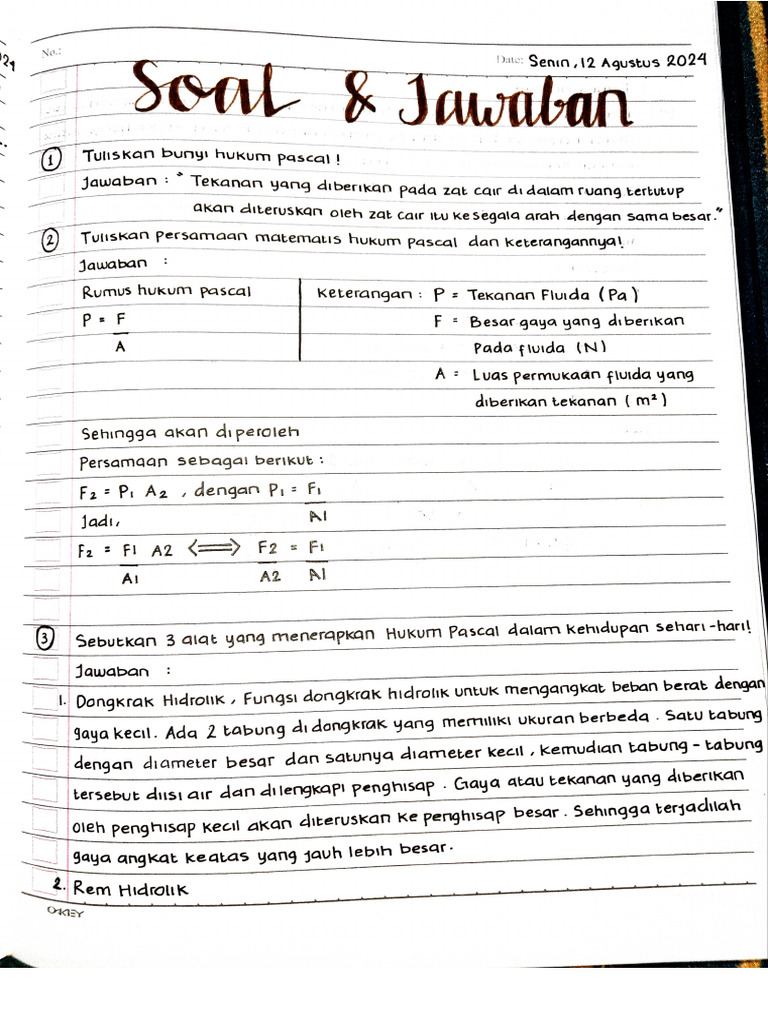 No.:
Date: Senin, 12 Agustus 2024
Soal & Jawaban
1 Tuliskan bunyi hukum pascal!
Jawaban : " Tekanan yang diberikan pada zat cair di dalam ruang tertutup
akan diteruskan oleh zat cair itu kesegala arah dengan sama besar."
2 Tuliskan persamaan matematis hukum pascal dan keterangannya!
Jawaban :
Rumus hukum pascal
P = F
A
Keterangan : P = Tekanan Fluida (Pa)
F = Besar gaya yang diberikan
Pada fluida (N)
A = Luas permukaan fluida yang
diberikan tekanan ( m²)
Sehingga akan diperoleh
Persamaan sebagai berikut :
F2 = P1 A2 , dengan P1 = F1
Jadi, A1
F2 = F1 A2 <=> F2 = F1
A1 A2 A1
3 Sebutkan 3 alat yang menerapkan Hukum Pascal dalam kehidupan sehari-hari!
Jawaban :
1. Dongkrak Hidrolik, Fungsi dongkrak hidrolik untuk mengangkat beban berat dengan
gaya kecil. Ada 2 tabung di dongkrak yang memiliki ukuran berbeda. Satu tabung
dengan diameter besar dan satunya diameter kecil, kemudian tabung-tabung
tersebut diisi air dan dilengkapi penghisap. Gaya atau tekanan yang diberikan
oleh penghisap kecil akan diteruskan ke penghisap besar. Sehingga terjadilah
gaya angkat keatas yang jauh lebih besar.
2. Rem Hidrolik